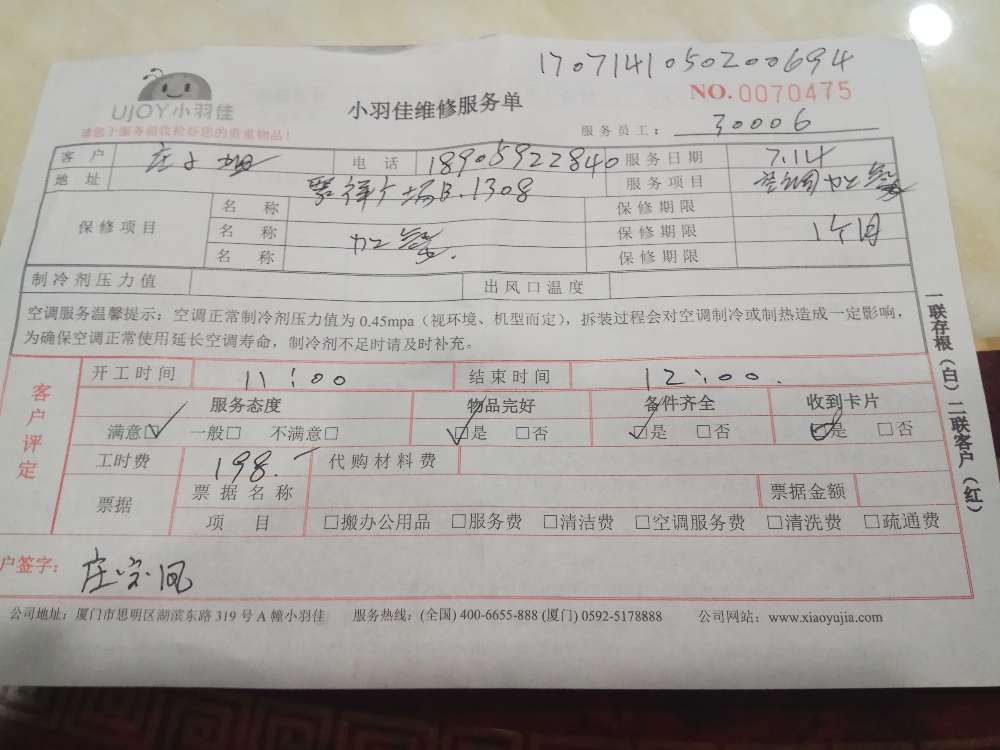 170714105020​0694
UJOY小羽佳
小羽佳维修服务单
NO.0070475
请您于服务前收拾好您的贵重物品！
服务员工： 30006
客户 庄小姐 电话 18905922840 服务日期 7.14
地址 广场B.1308 服务项目 空调加
保修项目 名称 保修期限
名称 加 保修期限 1个月
名称 保修期限
制冷剂压力值 出风口温度
空调服务温馨提示：空调正常制冷剂压力值为 0.45mpa（视环境、机型而定），拆装过程会对空调制冷或制热造成一定影响，
为确保空调正常使用延长空调寿命，制冷剂不足时请及时补充。
客户评定
开工时间 11:00 结束时间 12:00.
服务态度 物品完好 备件齐全 收到卡片
满意□ 一般□ 不满意□ □是 □否 □是 □否 □是 □否
工时费 198.- 代购材料费
票据 票据名称 票据金额
项目 □搬办公用品 □服务费 □清洁费 □空调服务费 □清洗费 □疏通费
户签字： 庄
公司地址：厦门市思明区湖滨东路 319 号 A 幢小羽佳 服务热线：(全国) 400-6655-888 (厦门) 0592-5178888 公司网站：www.xiaoyujia.com
一联存根（白）二联客户（红）